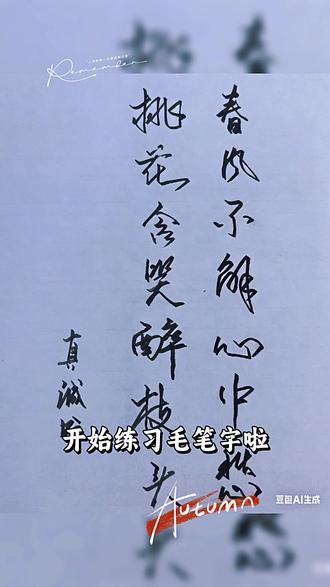 Remember
春风不解心中愁
桃花含哭醉枝头
真诚
开始练习毛笔字啦
Autumn
豆包AI生成